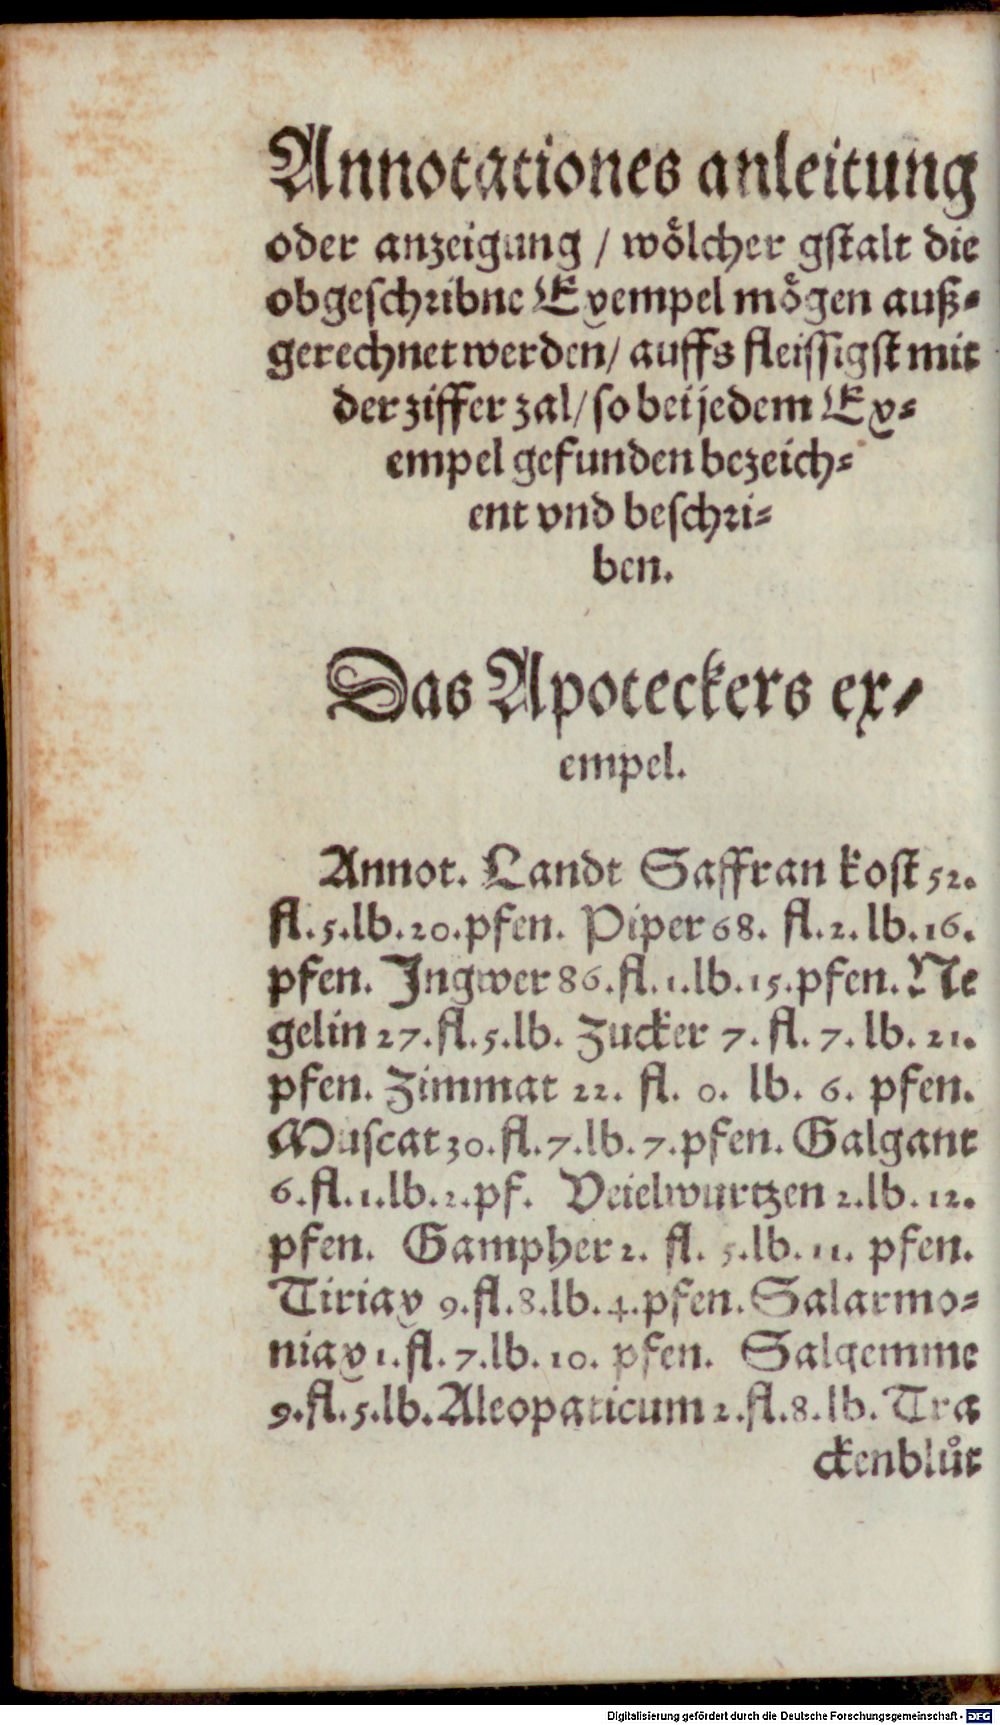 Annotationes anleitung
oder anzeigung / wölcher gstalt die
obgeschribne Exempel mögen auß=
gerechnet werden / auffs fleissigst mit
der ziffer zal / so bei jedem Ex=
empel gefunden bezeich=
ent vnd beschri=
ben.
Das Apoteckers ex=
empel.
Annot. Landt Saffran kost 52.
fl. 5. lb. 20. pfen. Piper 68. fl. 2. lb. 16.
pfen. Jngwer 86. fl. 1. lb. 15. pfen. Ne
gelin 27. fl. 5. lb. Zucker 7. fl. 7. lb. 21.
pfen. Zimmat 22. fl. 0. lb. 6. pfen.
Muscat 30. fl. 7. lb. 7. pfen. Galgant
6. fl. 1. lb. 2. pf. Veielwurtzen 2. lb. 12.
pfen. Gampher 2. fl. 5. lb. 11. pfen.
Tiriax 9. fl. 8. lb. 4. pfen. Salarmo=
niax 1. fl. 7. lb. 10. pfen. Salgemme
9. fl. 5. lb. Aleopaticum 2. fl. 8. lb. Tra
ckenblůt
Digitalisierung gefördert durch die Deutsche Forschungsgemeinschaft - DFG